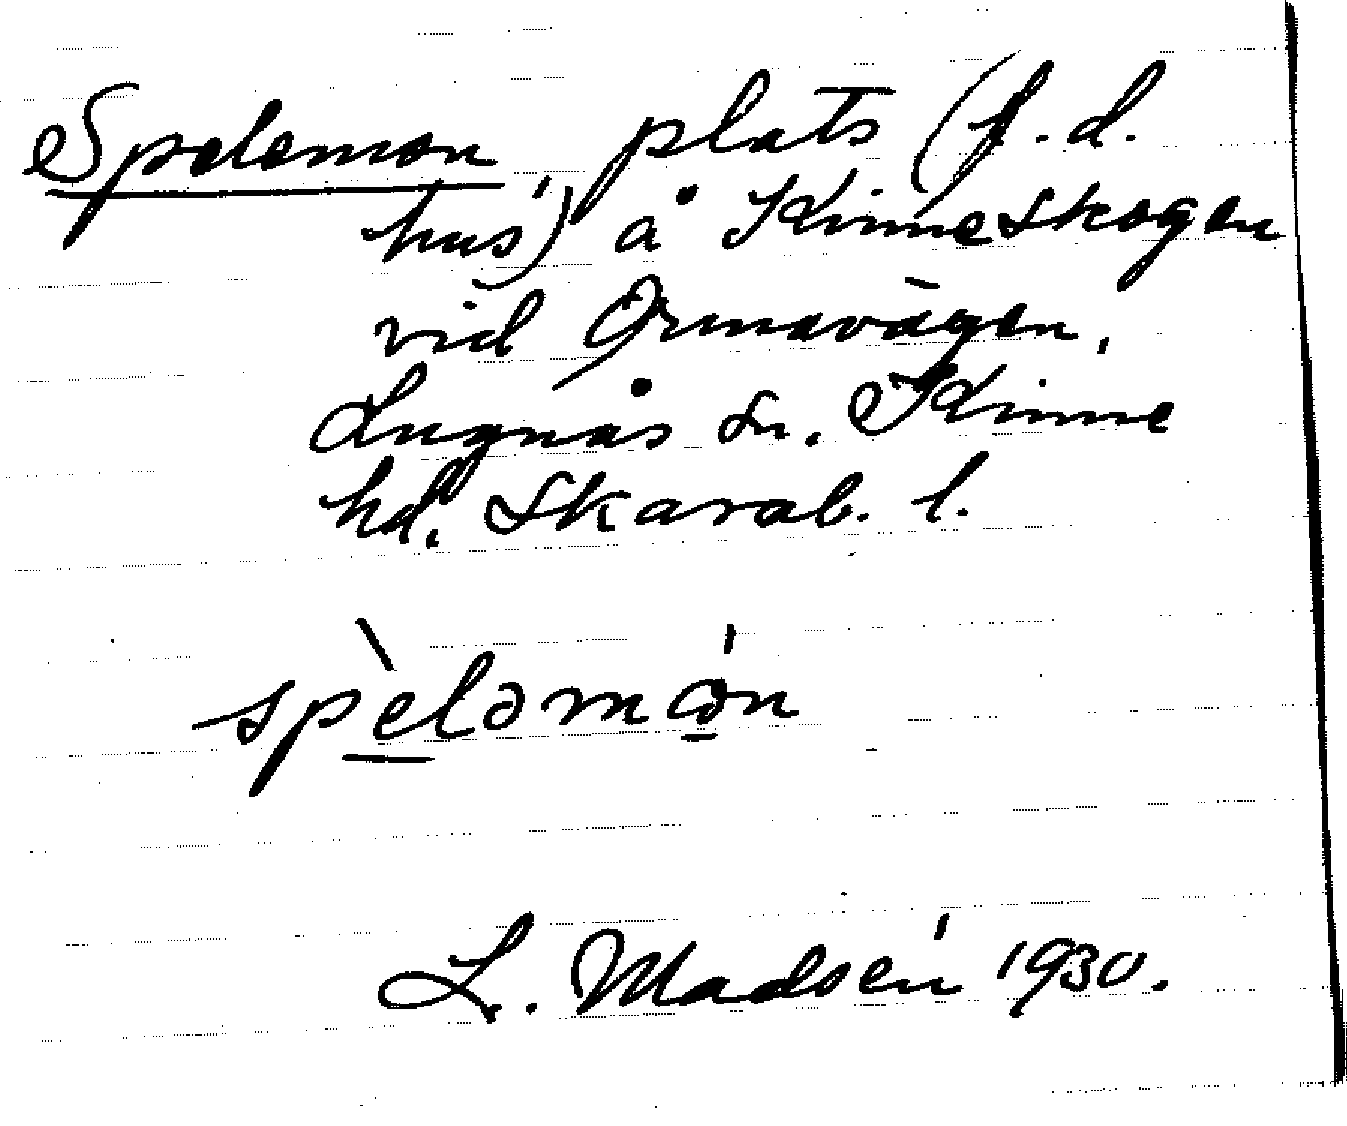 Spelemon, plats (f. d.
hus) å Kinneskogen
vid Ormavägen,
Lugnås sn. Kinne
hd. Skarab. l.
spèləmón
L. Madsén 1930.